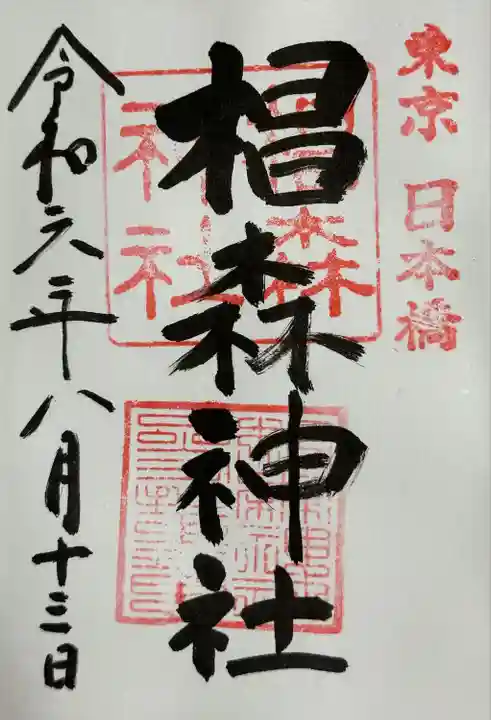 東京 日本橋
椙森神社
椙森神社
令和六年八月十三日